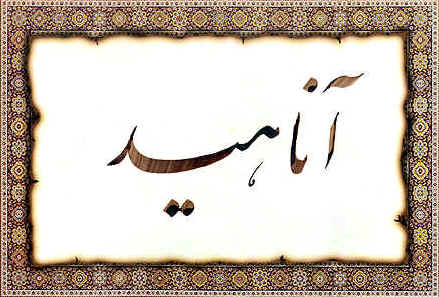 آناهید